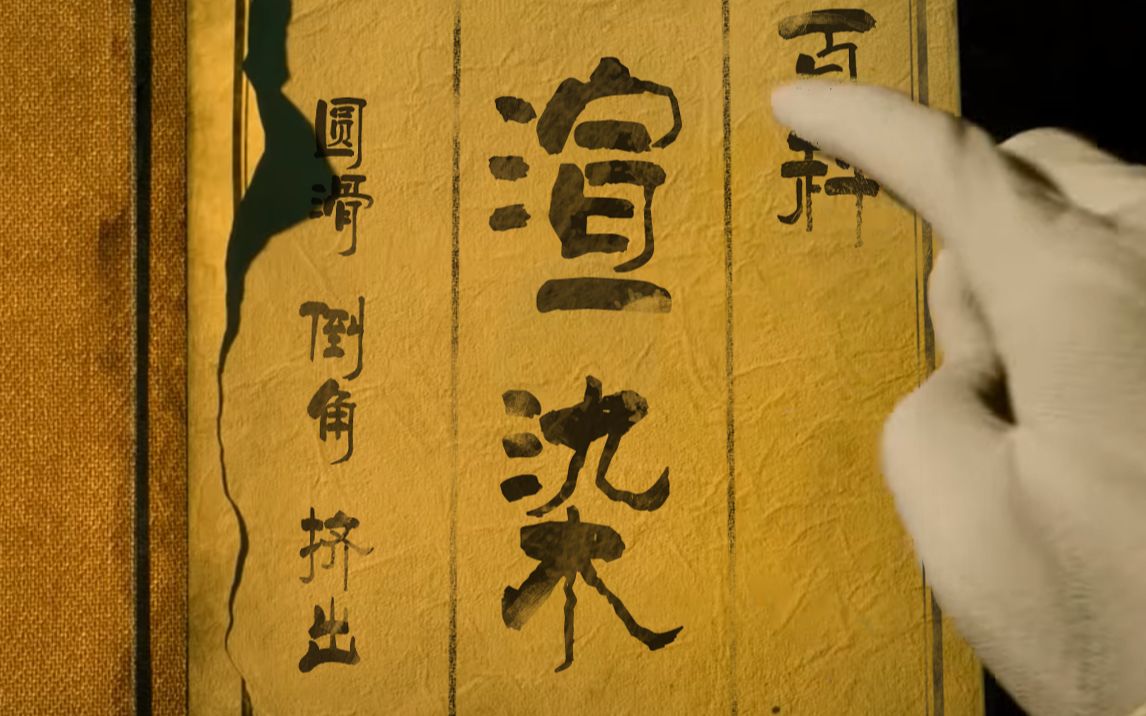 百科
渲染
圆滑 倒角 挤出